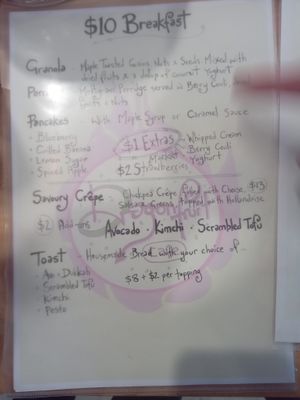 $10 Breakfast
Granola - Maple Toasted Grains, Nuts & Seeds Mixed with
dried fruits & a dollop of coconut Yoghurt
Porridge served w Berry Coulis,
fruits & nuts
Pancakes with Maple Syrup or Caramel Sauce
· Blueberry
· Grilled Banana
· Lemon Sugar
· Spiced Apple
$1 Extras - Whipped Cream
Berry Coulis
Yoghurt
$2 Strawberries
Savoury Crêpe - Chickpea Crêpe filled with Cheese, $13
Greens topped with Hollandaise
$2 Add-ons Avocado · Kimchi · Scrambled Tofu
Cafe
Toast - Housemade Bread with your choice of...
· Avo + Dukkah
· Scrambled Tofu
· Kimchi
· Pesto
$8 + $2 per topping